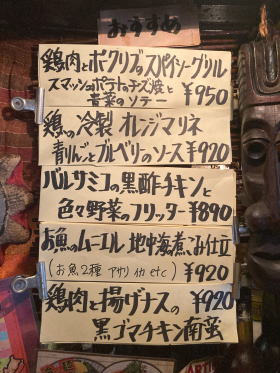 おすすめ
鶏肉とポクリブのスパイシーグリル
スマッシュポテトのチーズ焼と
青菜のソテー ¥950
鶏の冷製 オレンジマリネ
青りんごとブルーベリーのソース ¥920
バルサミコの黒酢チキンと
色々野菜のフリッター ¥890
お魚のムニエル 地中海煮こみ仕立
(お魚2種 アサリ イカ etc) ¥920
鶏肉と揚げナスの ¥920
黒ゴマチキン南蛮